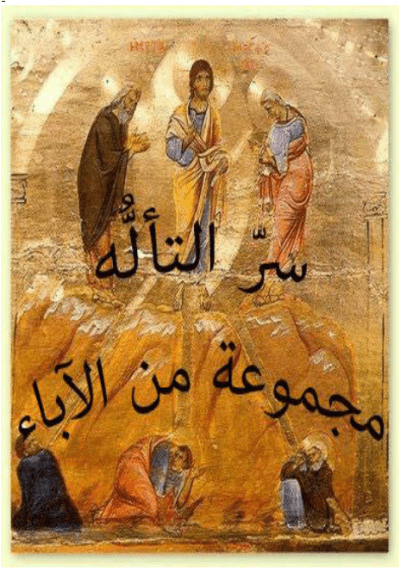 سرّ التألُّه
مجموعة من الآباء